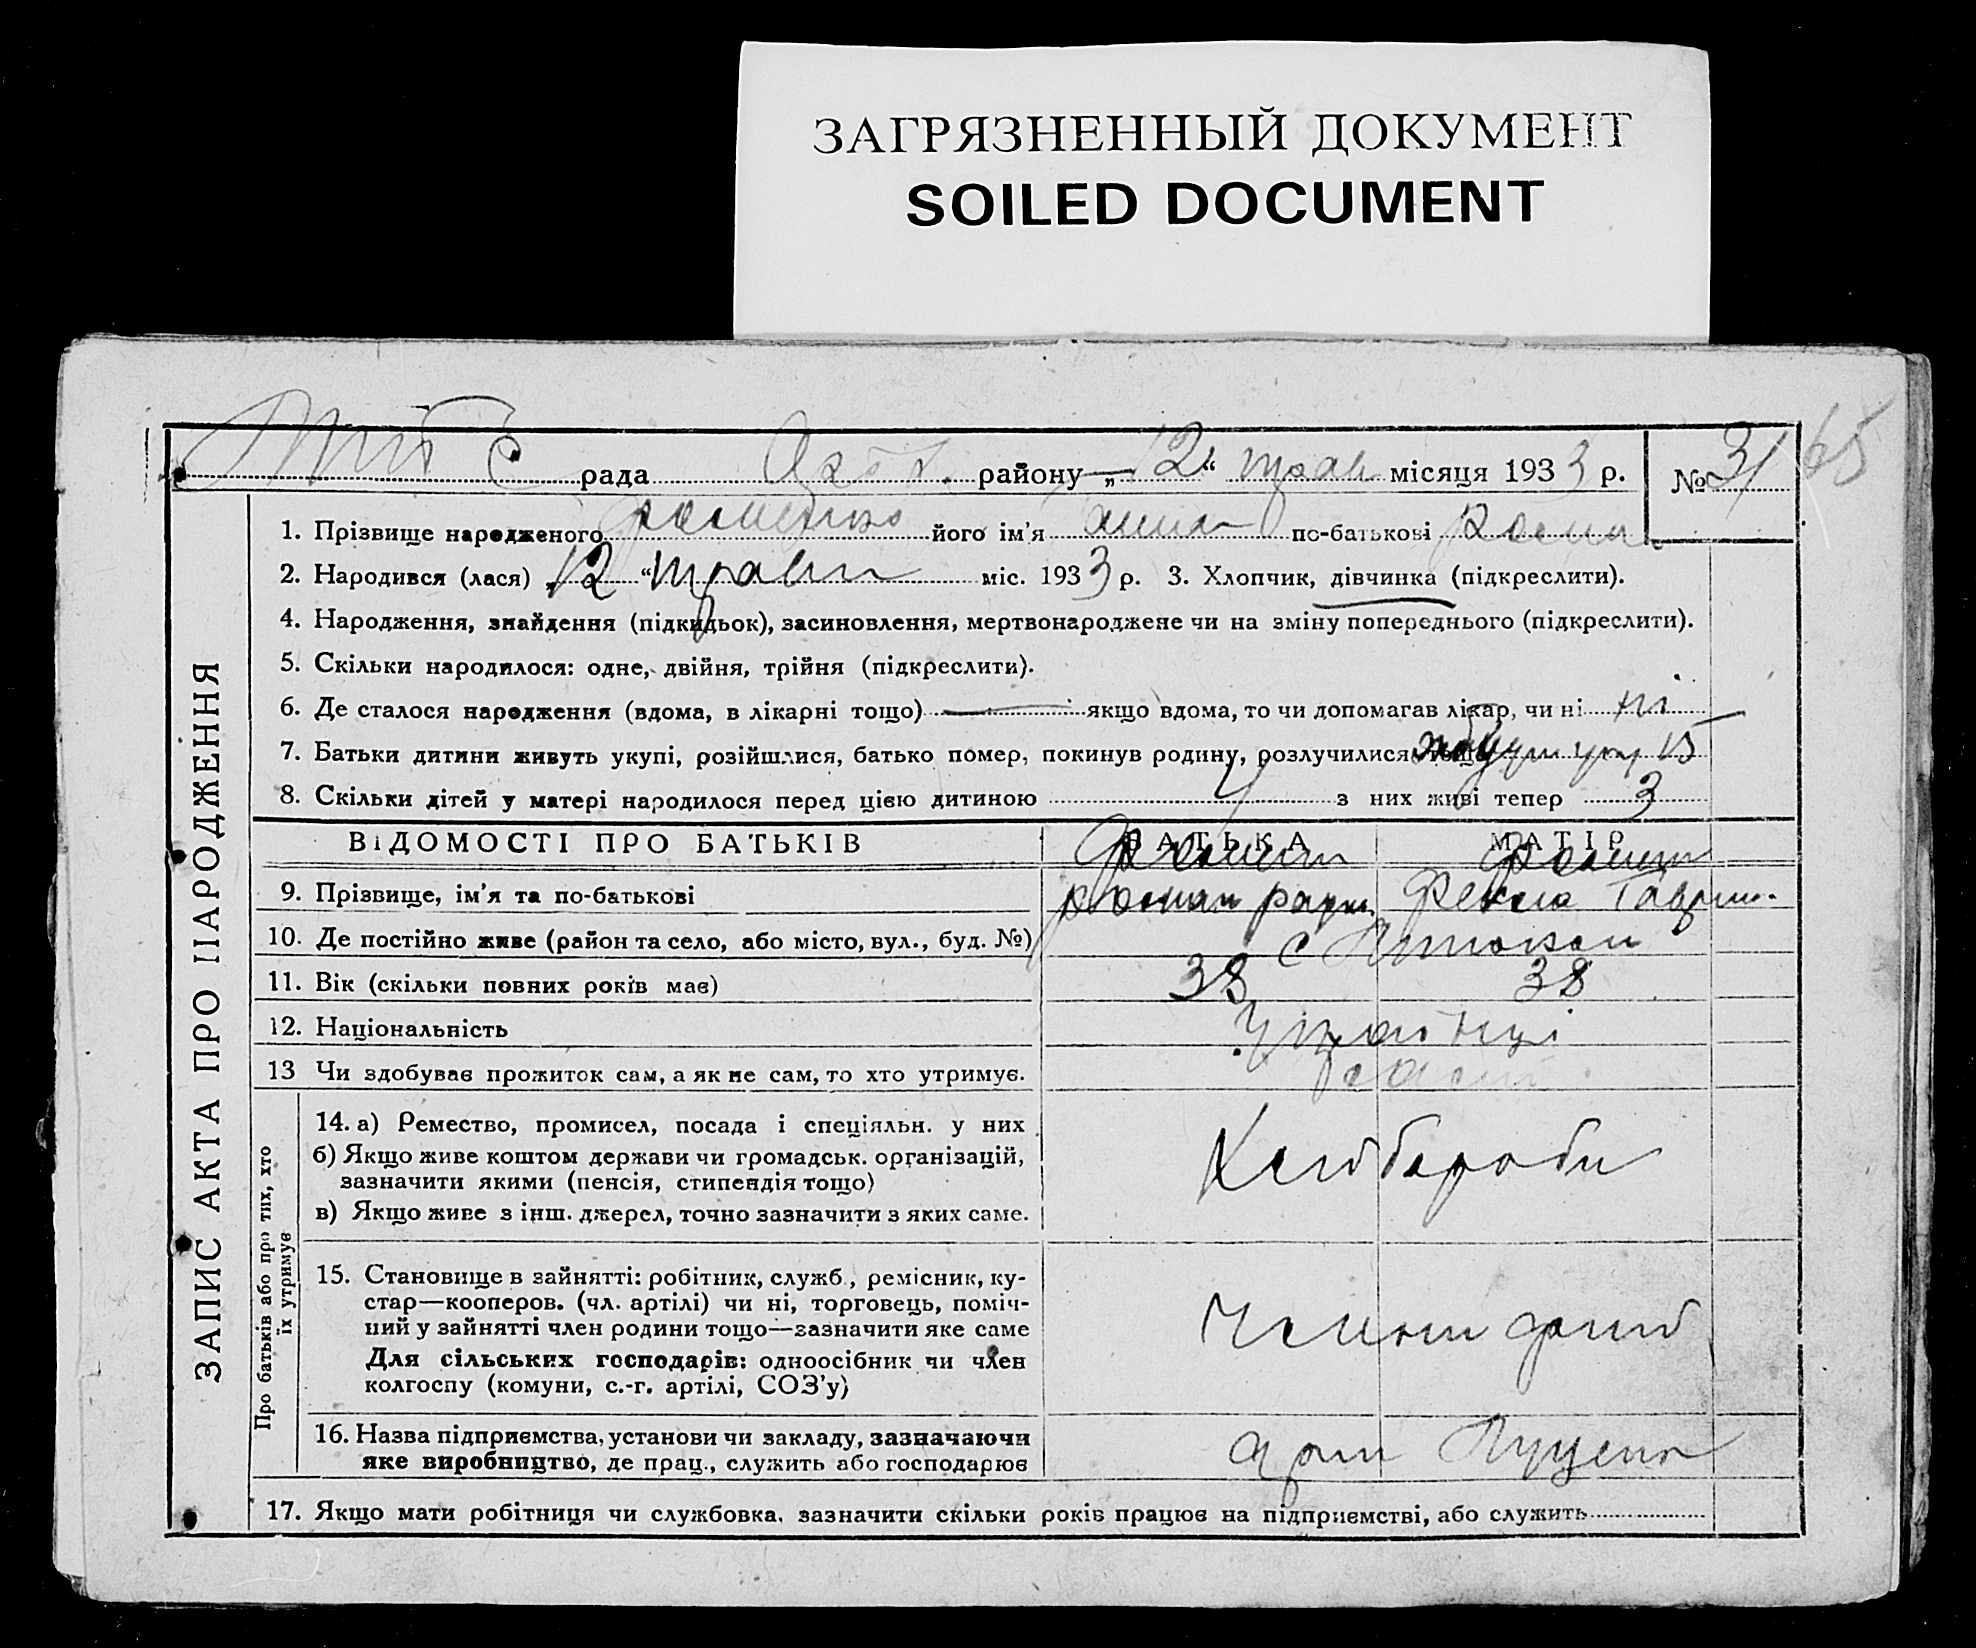 ЗАГРЯЗНЕННЫЙ ДОКУМЕНТ
SOILED DOCUMENT
65
рада району „12“ трав місяця 1933 р. № 31
ЗАПИС АКТА ПРО НАРОДЖЕННЯ
1. Прізвище народженого його ім'я по-батькові
2. Народився (лася) „12“ травн міс. 1933 р. 3. Хлопчик, дівчинка (підкреслити).
4. Народження, знайдення (підкидьок), засиновлення, мертвонароджене чи на зміну попереднього (підкреслити).
5. Скільки народилося: одне, двійня, трійня (підкреслити).
6. Де сталося народження (вдома, в лікарні тощо) — якщо вдома, то чи допомагав лікар, чи ні ні
7. Батьки дитини живуть укупі, розійшлися, батько помер, покинув родину, розлучилися тощо
8. Скільки дітей у матері народилося перед цією дитиною 4 з них живі тепер 3
ВІДОМОСТІ ПРО БАТЬКІВ БАТЬКА МАТІР
9. Прізвище, ім'я та по-батькові роман Фекла Гаврил.
10. Де постійно живе (район та село, або місто, вул., буд. №) с
11. Вік (скільки повних років має) 38 38
12. Національність Українці
13 Чи здобуває прожиток сам, а як не сам, то хто утримує.
Про батьків або про тих, хто їх утримує
14. а) Ремество, промисел, посада і спеціяльн. у них
б) Якщо живе коштом держави чи громадськ. організацій,
зазначити якими (пенсія, стипендія тощо)
в) Якщо живе з інш. джерел, точно зазначити з яких саме.
Хлібороби
15. Становище в зайнятті: робітник, служб., ремісник, ку-
стар—кооперов. (чл. артілі) чи ні, торговець, поміч-
ний у зайнятті член родини тощо—зазначити яке саме
Для сільських господарів: одноосібник чи член
колгоспу (комуни, с.-г. артілі, СОЗ'у)
16. Назва підприємства, установи чи закладу, зазначаючи
яке виробництво, де прац., служить або господарює
17. Якщо мати робітниця чи службовка, зазначити скільки років працює на підприємстві, або служить